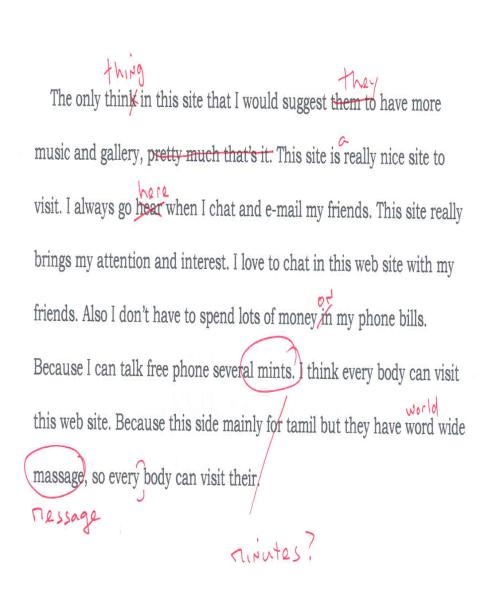 thing they
The only think in this site that I would suggest them to have more
a
music and gallery, pretty much that's it. This site is really nice site to
here
visit. I always go hear when I chat and e-mail my friends. This site really
brings my attention and interest. I love to chat in this web site with my
on
friends. Also I don't have to spend lots of money in my phone bills.
Because I can talk free phone several mints. I think every body can visit
world
this web site. Because this side mainly for tamil but they have word wide
massage, so every body can visit their.
message
minutes?